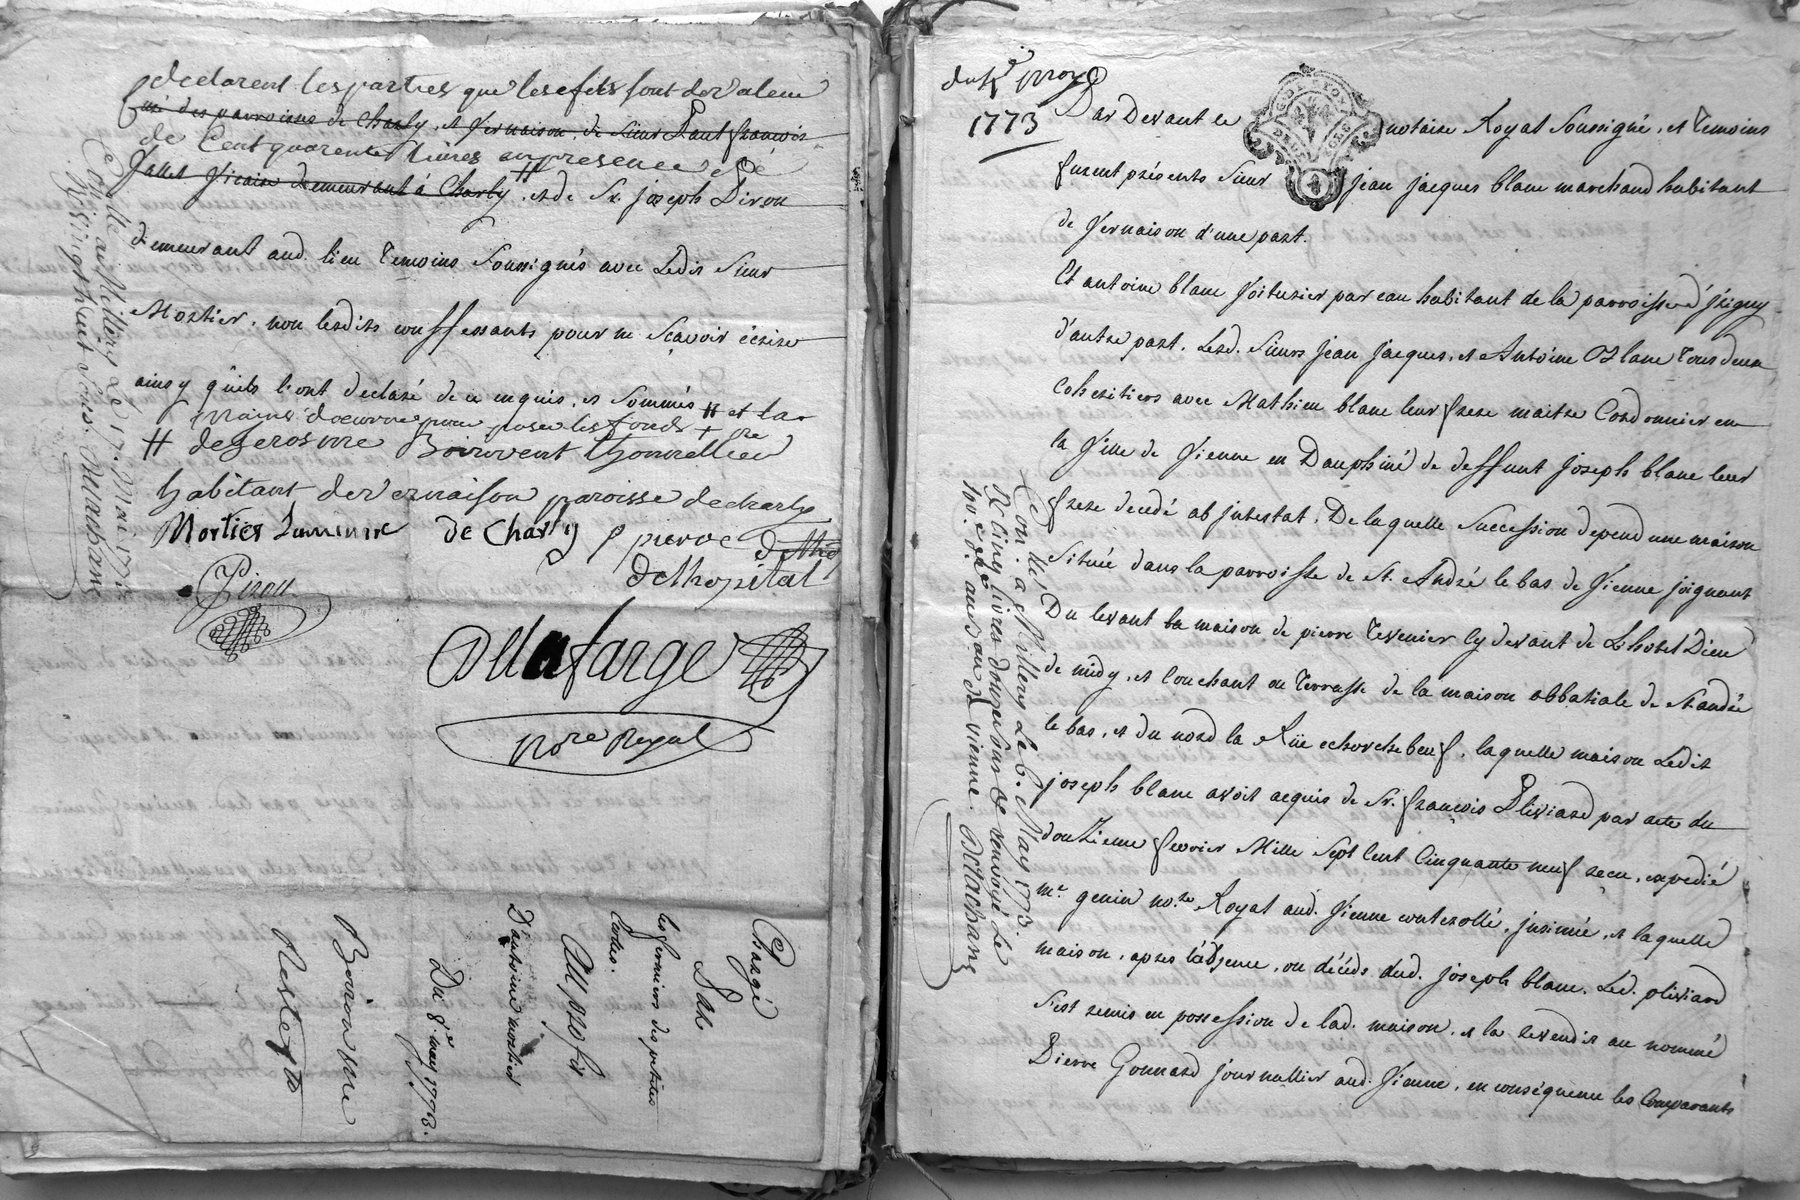 declarent les parties que les efets sont de valeur
une des parroisses de Charly, et Vernaison, de sieur Paul françois
de Cent quarente livres en presence de
vicaire demeurant à Charly # et de Sr. joseph Piron
demeurant aud. lieu Temoins Soussignés avec Ledit Sieur
Mortier, non lesdits confessants pour ne Scavoir écrire
ainsy qu'ils l'ont declaré de ce enquis, et Sommés # et la
mains doeuvre pour poser les fonds +
# de gerosme Boiron et thonnellier
habitant de vernaison paroisse de charly
Mortier Luminier de Charly pierre
Piron
de lhopital
Dellafarge
Nore Royal
Conllé a Millery Le 17 Mai 1773
Reçu vingt huit sous. Delachans
Chargé
Par
les fermiers des petites
Ecoles.
Au profit
D'antoine mortier
Du 8e. may 1773.
Boiron une
Reste
du 4e may
1773
Par Devant le notaire Royal Soussigné, et Temoins
furent présents Sieur jean jacques blanc marchand habitant
de Vernaison d'une part.
Et antoine blanc Voiturier par eau habitant de la parroisse d'jrigny
d'autre part. Lesd. Sieurs jean jacques, et Antoine Blanc Tous deux
Coheritiers avec Mathieu blanc leur frere maitre Cordonnier en
la Ville de Vienne en Dauphiné de deffunt joseph blanc leur
frere decedé ab jntestat. De laquelle Succession depend une maison
Située dans la parroisse de St. André le bas de Vienne joignant
Du levant la maison de pierre Tevenier cy devant de L'hotel Dieu
de midy, et Couchant ou Terrasse de la maison abbatiale de St. andré
le bas, et du nord la Rüe echorchebeuf, laquelle maison Ledit
joseph blanc avoit acquis de Sr. françois Pliviard par acte du
douZieme fevrier Mille Sept Cent Cinquante neuf recu, expedié
me. genin nore. Royal aud. Vienne conterollé, jnsinué, et laquelle
maison, apres l'absence, ou décéds dud. joseph blanc, Led. pliviard
s'est remis en possession de lad. maison, et la revendit au nommé
Pierre Gonnard journallier aud. Vienne, en conséquence les Comparants
Con. lle. a Millery Le 6. May 1773.
Re. cinq livres douze sous & renvoyé Le
100e. d. au bureau de vienne. Delachans